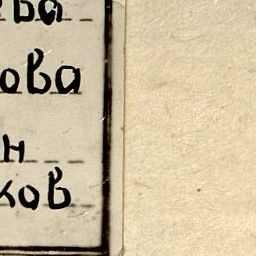 ева
ова
н
ков